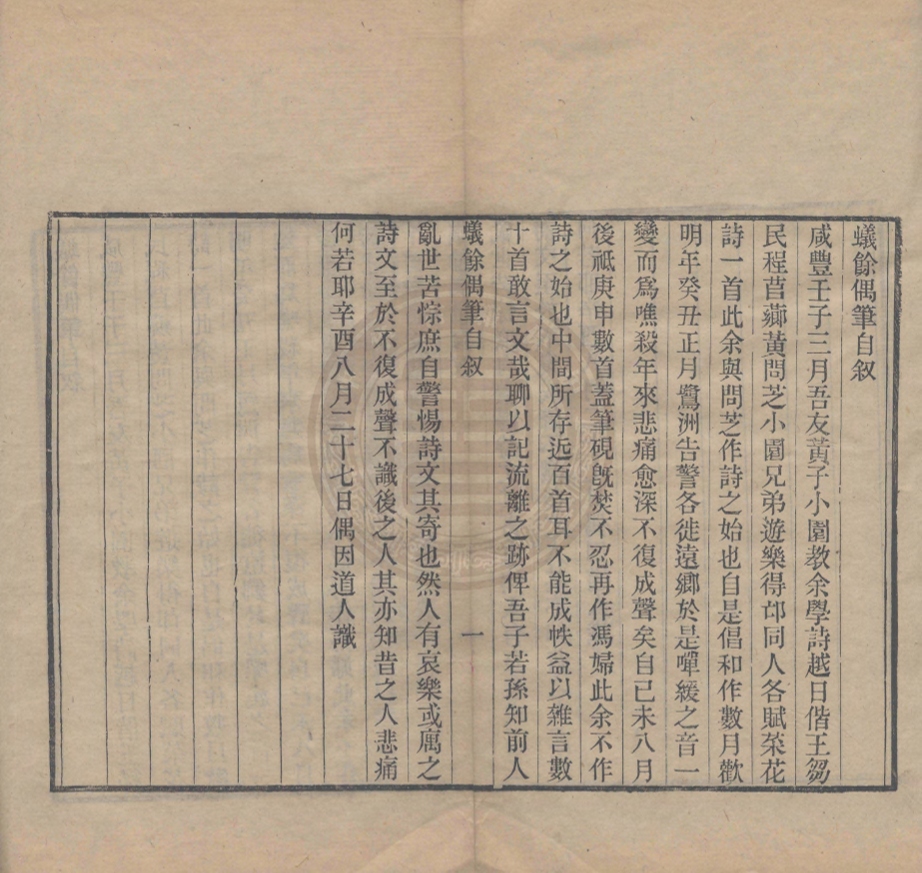 蟻餘偶筆自叙
咸豐壬子三月吾友黃子小園教余學詩越日偕王芻
民程苢薌黃問芝小園兄弟遊樂得邙同人各賦菜花
詩一首此余與問芝作詩之始也自是倡和作數月歡
明年癸丑正月鷺洲告警各徙遠鄉於是嘽緩之音一
變而爲噍殺年來悲痛愈深不復成聲矣自已未八月
後祗庚申數首蓋筆硯旣焚不忍再作馮婦此余不作
詩之始也中間所存近百首耳不能成帙益以雜言數
十首敢言文哉聊以記流離之跡俾吾子若孫知前人
蟻餘偶筆自叙 一
亂世苦悰庶自警惕詩文其寄也然人有哀樂或厲之
詩文至於不復成聲不識後之人其亦知昔之人悲痛
何若耶辛酉八月二十七日偶因道人識